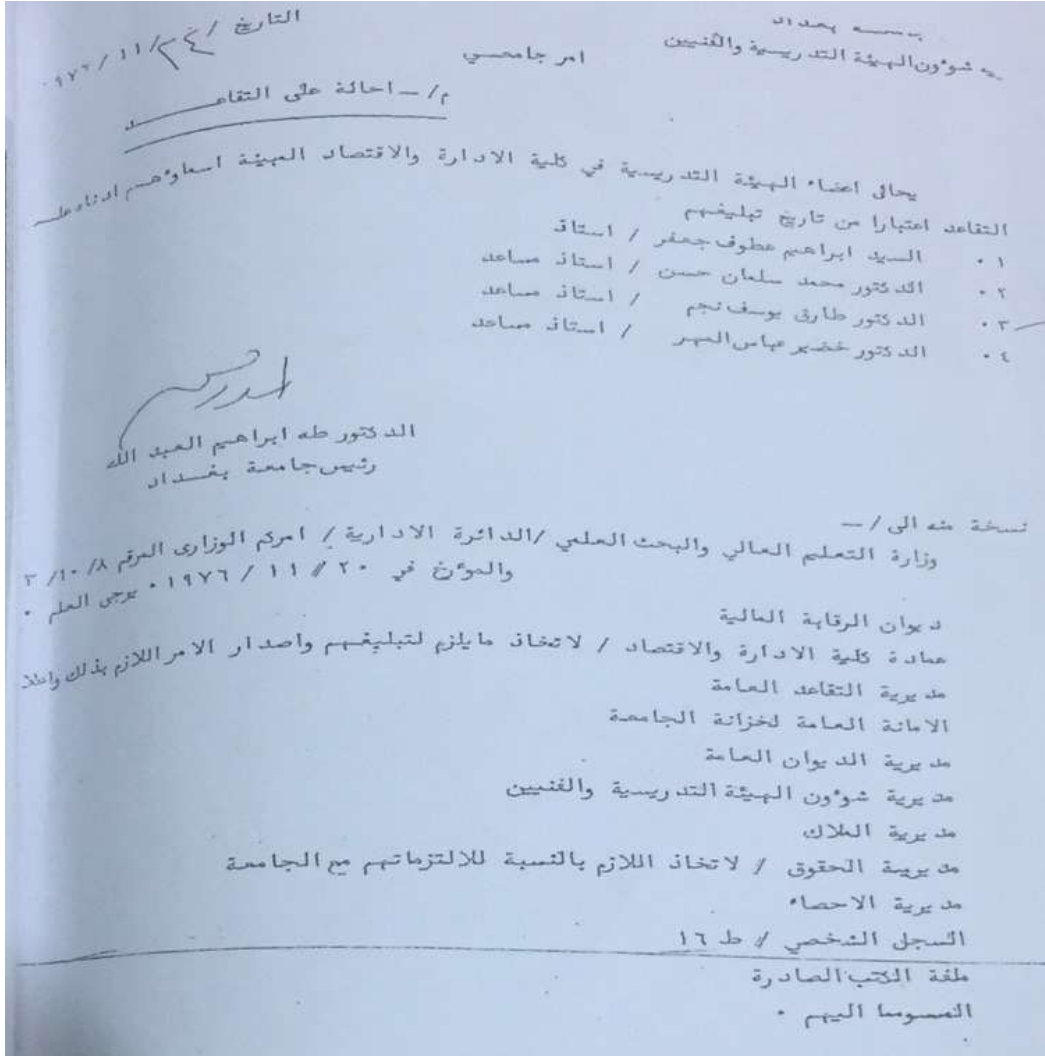 بغداد
شوءون الهيئة التدريسية والفنيين
امر جامعي
التاريخ / ٢٤ / ١١ / ٩٧٦
م / ـ احالة على التقاعد
يحال اعضاء الهيئة التدريسية في كلية الادارة والاقتصاد المبينة اسماوءهم ادناه على
التقاعد اعتبارا من تاريخ تبليغهم
٠١ السيد ابراهيم عطوف جعفر / استاذ
٠٢ الدكتور محمد سلمان حسن / استاذ مساعد
٠٣ الدكتور طارق يوسف نجم / استاذ مساعد
٠٤ الدكتور خضير عباس المهر / استاذ مساعد
الدكتور طه ابراهيم العبد الله
رئيس جامعة بغداد
نسخة منه الى / ـ
وزارة التعليم العالي والبحث العلمي / الدائرة الادارية / امركم الوزارى المرقم ٨ / ١٠ / ٣
والموءرخ في ٢٠ // ١١ / ١٩٧٦ ٠ يرجى العلم ٠
ديوان الرقابة المالية
عمادة كلية الادارة والاقتصاد / لاتخاذ مايلزم لتبليغهم واصدار الامر اللازم بذلك
مديرية التقاعد العامة
الامانة العامة لخزانة الجامعة
مديرية الديوان العامة
مديرية شوءون الهيئة التدريسية والفنيين
مديرية الملاك
مديرية الحقوق / لاتخاذ اللازم بالنسبة للالتزماتهم مع الجامعة
مديرية الاحصاء
السجل الشخصي / ط ١٦
ملفة الكتب الصادرة
اليهم ٠